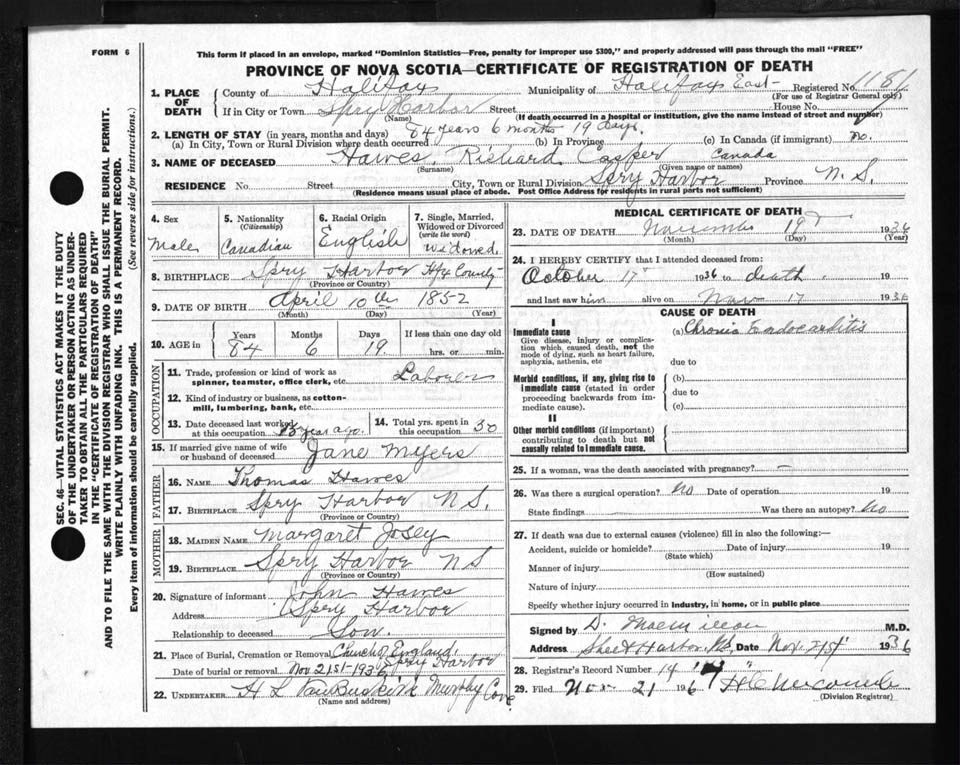 FORM 6
This form if placed in an envelope, marked "Dominion Statistics—Free, penalty for improper use $300," and properly addressed will pass through the mail "FREE"
PROVINCE OF NOVA SCOTIA—CERTIFICATE OF REGISTRATION OF DEATH
1. PLACE OF DEATH
County of Halifax Municipality of Halifax East Registered No. 1181
(For use of Registrar General only)
If in City or Town Spry Harbor Street House No.
(Name) (If death occurred in a hospital or institution, give the name instead of street and number)
2. LENGTH OF STAY (in years, months and days) 84 years 6 months 19 days.
(a) In City, Town or Rural Division where death occurred (b) In Province (c) In Canada (if immigrant) no.
3. NAME OF DECEASED Hawes, Richard Casper Canada
(Surname) (Given name or names)
RESIDENCE No. Street City, Town or Rural Division Spry Harbor Province N. S.
(Residence means usual place of abode. Post Office Address for residents in rural parts not sufficient)
4. Sex
Male
5. Nationality
(Citizenship)
Canadian
6. Racial Origin
English
7. Single, Married, Widowed or Divorced
(write the word)
Widowed.
8. BIRTHPLACE Spry Harbor Hfx County
(Province or Country)
9. DATE OF BIRTH April 10th 1852
(Month) (Day) (Year)
10. AGE in
Years Months Days If less than one day old
84 6 19. hrs. or min.
OCCUPATION
11. Trade, profession or kind of work as
spinner, teamster, office clerk, etc. Laborer
12. Kind of industry or business, as cotton-
mill, lumbering, bank, etc.
13. Date deceased last worked
at this occupation year ago.
14. Total yrs. spent in
this occupation 30
15. If married give name of wife
or husband of deceased Jane Myers
FATHER
16. NAME Thomas Hawes
17. BIRTHPLACE Spry Harbor N S.
(Province or Country)
MOTHER
18. MAIDEN NAME Margaret Josey
19. BIRTHPLACE Spry Harbor N S
(Province or Country)
20. Signature of informant John Hawes
Address Spry Harbor
Relationship to deceased Son.
21. Place of Burial, Cremation or Removal Church of England, Spry Harbor
Date of burial or removal Nov 21st 1936
22. UNDERTAKER H L VanBuskirk Murphy Cove
(Name and address)
MEDICAL CERTIFICATE OF DEATH
23. DATE OF DEATH November 19 1936
(Month) (Day) (Year)
24. I HEREBY CERTIFY that I attended deceased from:
October 17 1936 to death 19
and last saw him alive on Nov 17 1936
CAUSE OF DEATH
I
Immediate cause
Give disease, injury or complica-
tion which caused death, not the
mode of dying, such as heart failure,
asphyxia, asthenia, etc
(a) Chronic Endocarditis
due to
Morbid conditions, if any, giving rise to
immediate cause (stated in order
proceeding backwards from im-
mediate cause).
(b)
due to
(c)
II
Other morbid conditions (if important)
contributing to death but not
causally related to immediate cause.
25. If a woman, was the death associated with pregnancy? —
26. Was there a surgical operation? No Date of operation 19
State findings Was there an autopsy? No
27. If death was due to external causes (violence) fill in also the following:—
Accident, suicide or homicide? Date of injury 19
(State which)
Manner of injury
(How sustained)
Nature of injury
Specify whether injury occurred in industry, in home, or in public place
Signed by D. M.D.
Address Sheet Harbor, N.S. Date Nov. 21st 1936
28. Registrar's Record Number 14
29. Filed Nov 21 1936
(Division Registrar)
SEC. 46—VITAL STATISTICS ACT MAKES IT THE DUTY
OF THE UNDERTAKER OR PERSON ACTING AS UNDER-
TAKER TO OBTAIN ALL THE PARTICULARS REQUIRED
IN THE "CERTIFICATE OF REGISTRATION OF DEATH"
AND TO FILE THE SAME WITH THE DIVISION REGISTRAR WHO SHALL ISSUE THE BURIAL PERMIT.
WRITE PLAINLY WITH UNFADING INK. THIS IS A PERMANENT RECORD.
Every item of information should be carefully supplied. (See reverse side for instructions.)